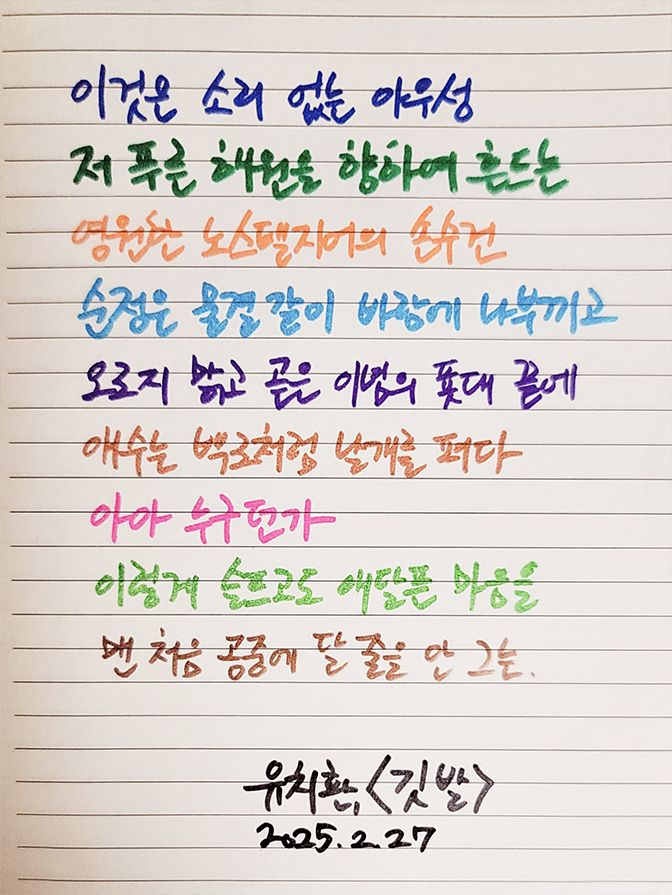 이것은 소리 없는 아우성
저 푸른 해원을 향하여 흔드는
영원한 노스탤지어의 손수건
순정은 물결 같이 바람에 나부끼고
오로지 맑고 곧은 이념의 푯대 끝에
애수는 백로처럼 날개를 펴다
아아 누구던가
이렇게 슬프고도 애달픈 마음을
맨 처음 공중에 달 줄을 안 그는.
유치환, <깃발>
2025.2.27